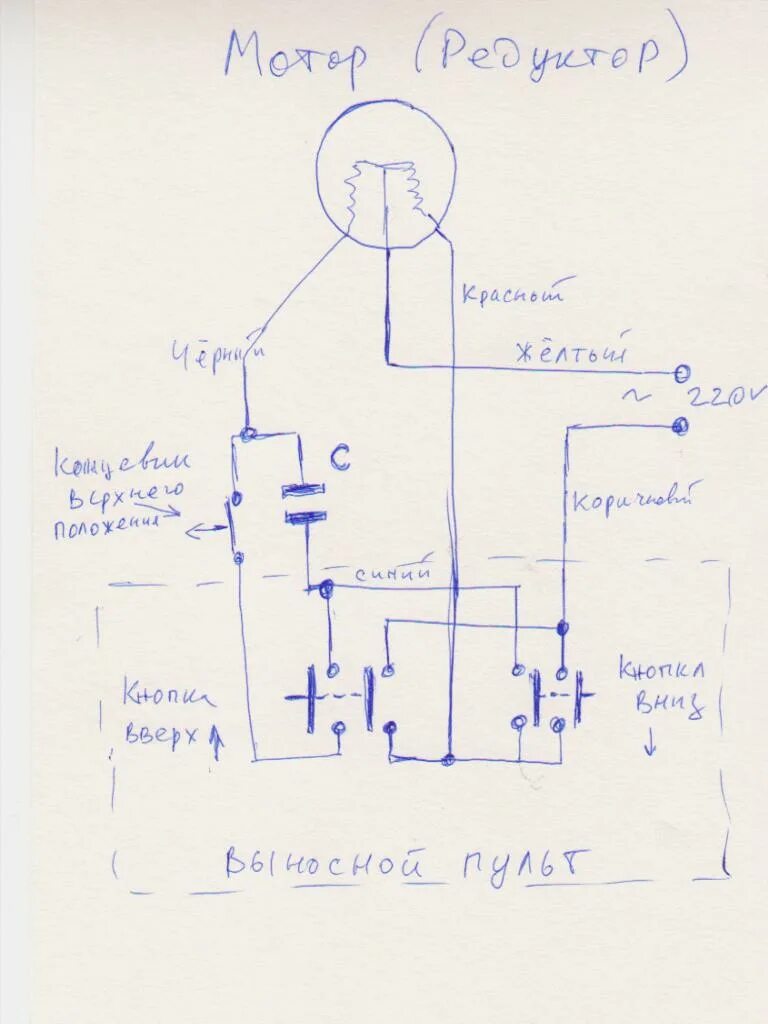 Мотор (Редуктор)
Красный
Чёрный
Жёлтый
~ 220v
Концевик
верхнего
положения
C
Коричневый
синий
Кнопка
вверх
Кнопка
вниз
Выносной пульт